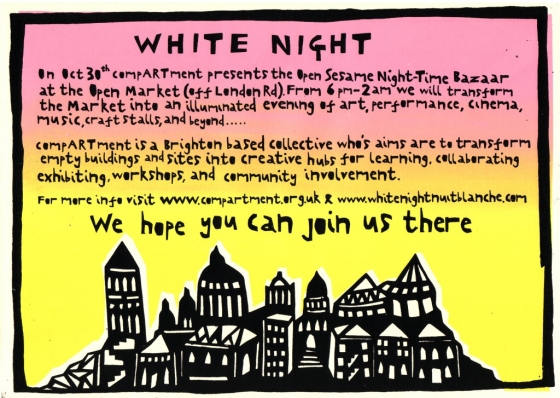 WHITE NIGHT
On Oct 30th compARTment presents the Open Sesame Night-Time Bazaar
at the Open Market (off London Rd). From 6pm-2am we will transform
the Market into an illuminated evening of art, performance, cinema,
music, craft stalls, and beyond.....
compARTment is a Brighton based collective who's aims are to transform
empty buildings and sites into creative hubs for learning, collaborating
exhibiting, workshops, and community involvement.
For more info visit www.compartment.org.uk & www.whitenightnuitblanche.com
We hope you can join us there